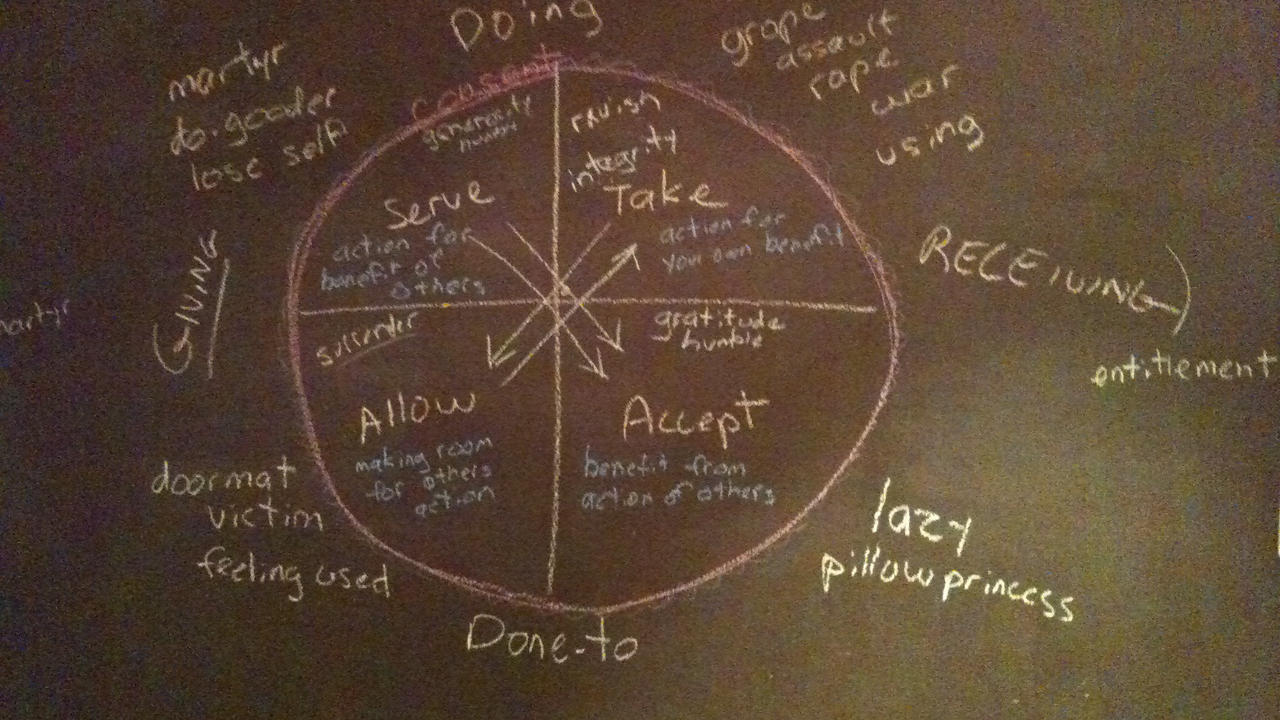 Doing
martyr
do-gooder
lose self
grope
assault
rape
war
using
consent
generosity
ravish
integrity
Serve
action for
benefit of
others
Take
action for
your own benefit
GIVING
RECEIVING
martyr
entitlement
surrender
gratitude
humble
Allow
making room
for others
action
Accept
benefit from
action of others
doormat
victim
feeling used
lazy
pillow princess
Done-to